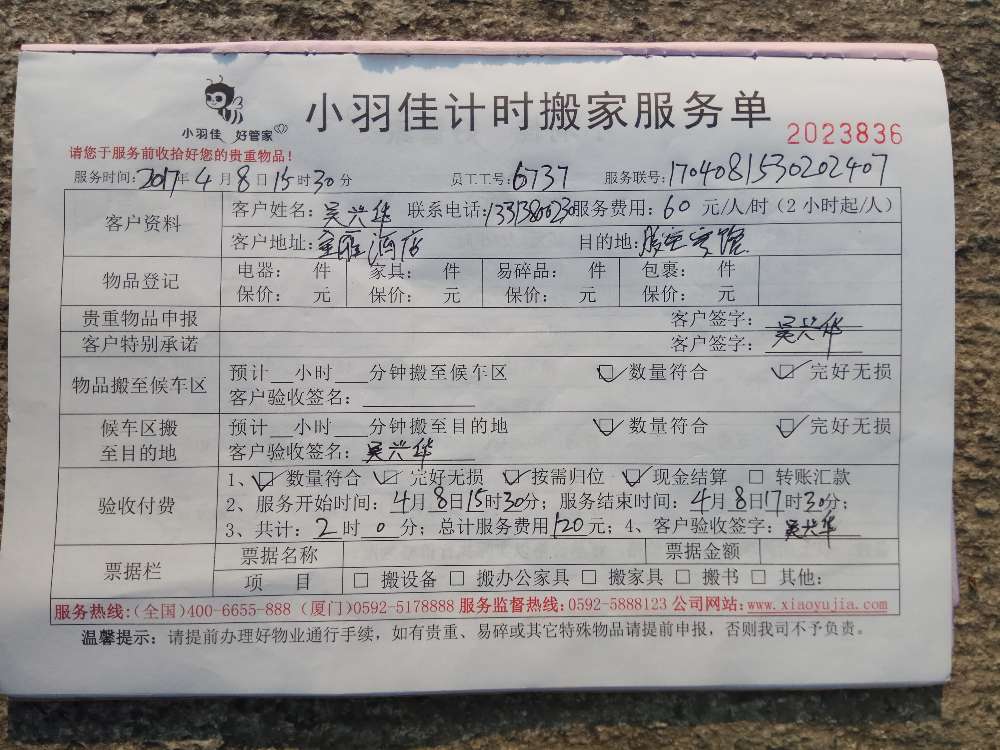 小羽佳 好管家
小羽佳计时搬家服务单
2023836
请您于服务前收拾好您的贵重物品！
服务时间：2017年4月8日15时30分 员工工号：6737 服务联号：1704081530202407
客户资料 客户姓名：吴兴华 联系电话： 服务费用：60元/人/时（2小时起/人）
客户地址：金雁酒店 目的地：宾馆
物品登记 电器： 件 家具： 件 易碎品： 件 包裹： 件
保价： 元 保价： 元 保价： 元 保价： 元
贵重物品申报 客户签字：吴兴华
客户特别承诺 客户签字：
物品搬至候车区 预计__小时___分钟搬至候车区 ☑数量符合 ☑完好无损
客户验收签名：
候车区搬至目的地 预计__小时___分钟搬至目的地 ☑数量符合 ☑完好无损
客户验收签名：吴兴华
验收付费 1、☑数量符合 ☑完好无损 ☑按需归位 ☑现金结算 □转账汇款
2、服务开始时间：4月8日15时30分；服务结束时间：4月8日17时30分；
3、共计：2时0分；总计服务费用120元；4、客户验收签字：吴兴华
票据栏 票据名称 票据金额
项 目 □搬设备 □搬办公家具 □搬家具 □搬书 □其他：
服务热线：（全国）400-6655-888（厦门）0592-5178888 服务监督热线：0592-5888123 公司网站：www.xiaoyujia.com
温馨提示：请提前办理好物业通行手续，如有贵重、易碎或其它特殊物品请提前申报，否则我司不予负责。